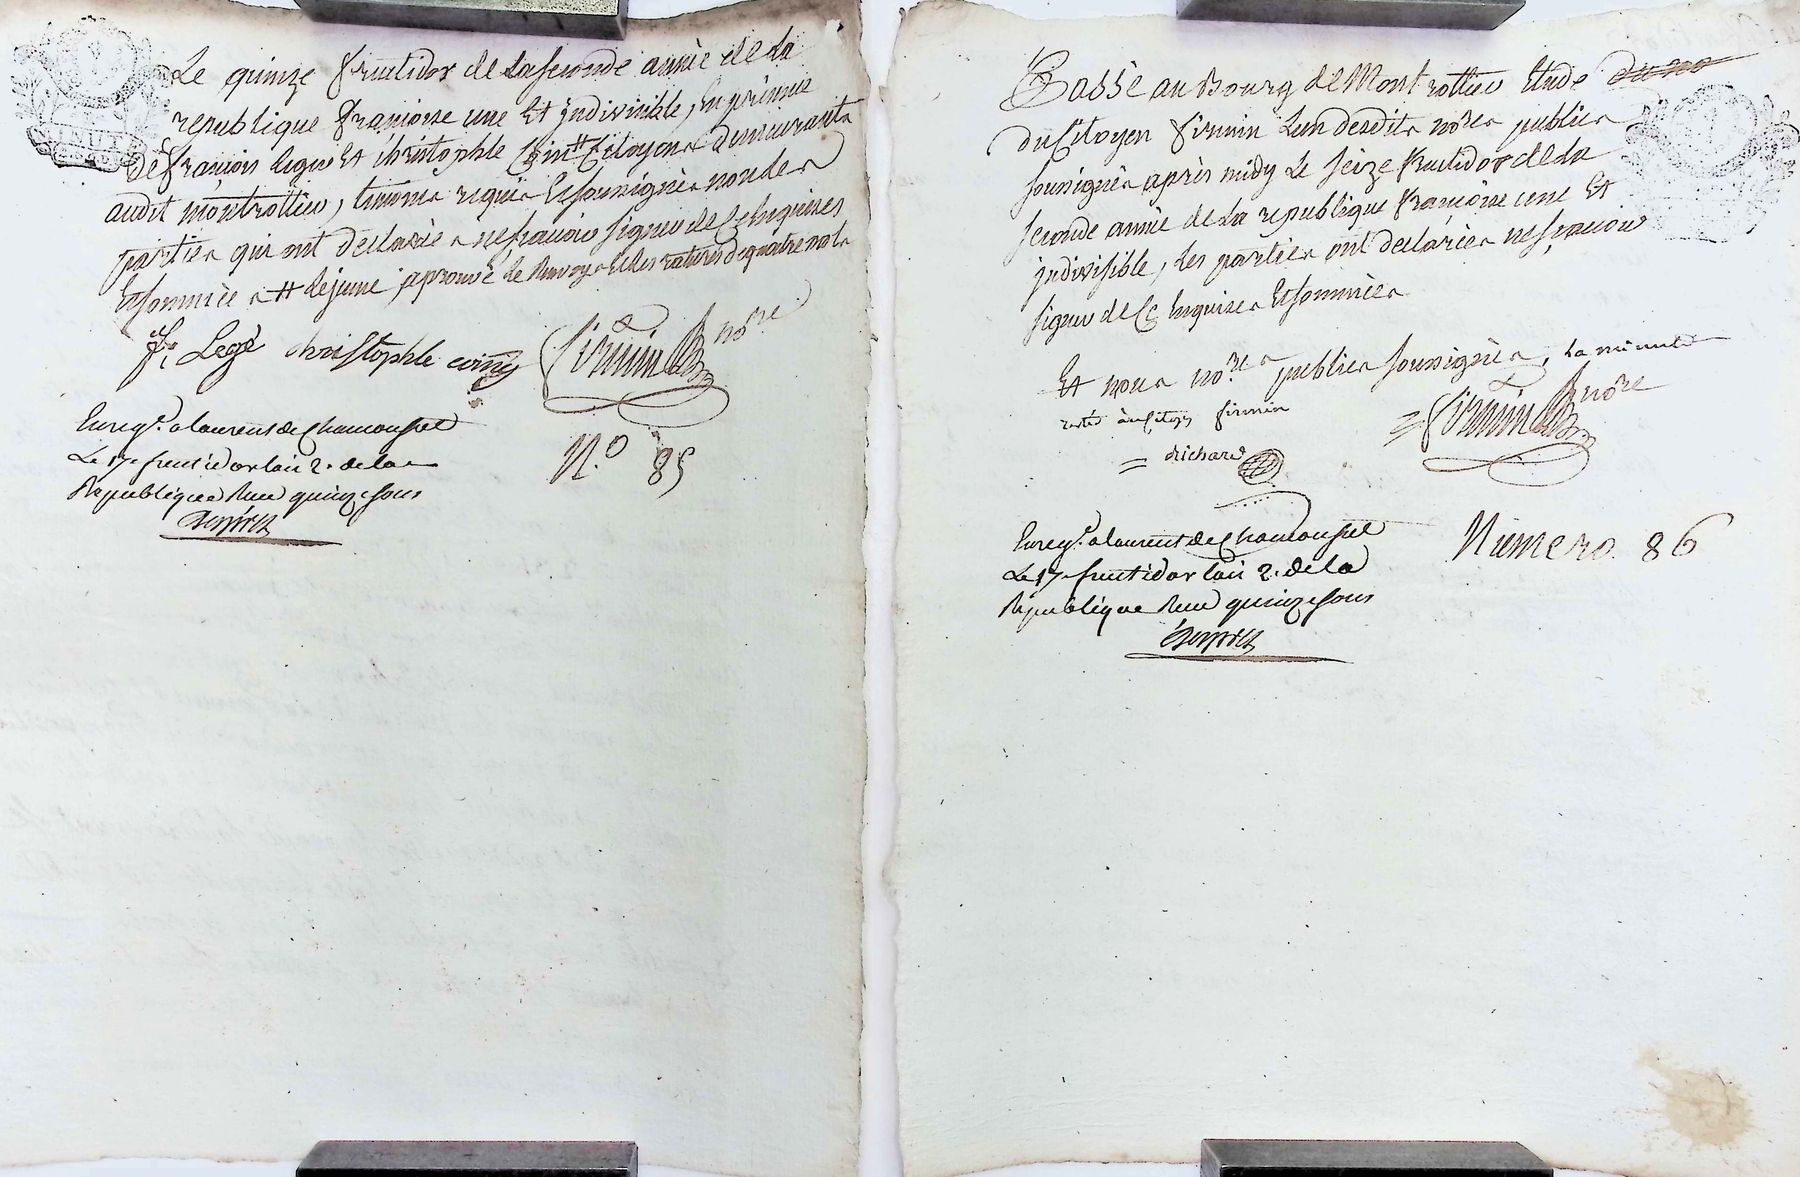 Le quinze fructidor de la seconde année de la
republique françoise une Et indivisible, En présence
de françois legé Et christophle Citoyens demeurants
audit montrottier, temoins requis Et soussignés non les
parties qui ont declarée ne sçavoir signer de Ce Enquises
Et sommées # déjeune, aprouvé le Renvoy Et les ratures de quatre mots
fs. Legé christophle coint firmin nore
Enregt. a laurent de Chamousset
Le 17e fructidor lan 2. de la
Republique Reçu quinze sous
N.o 85
Passé au Bourg de Montrottier Etude du no
du Citoyen firmin Lun desdits nores publics
soussignés après midy Le seize fructidor de la
seconde année de la republique françoise une Et
indivisible, les parties ont declarées ne sçavoir
signer de Ce Enquises Et sommées
Et nous nores publics soussignés, la minute
restée au Citoyen firmin
= richard = firmin nore
Enregt. a laurent de Chamousset
Le 17e fructidor lan 2. de la
Republique Reçu quinze sous
Numero 86